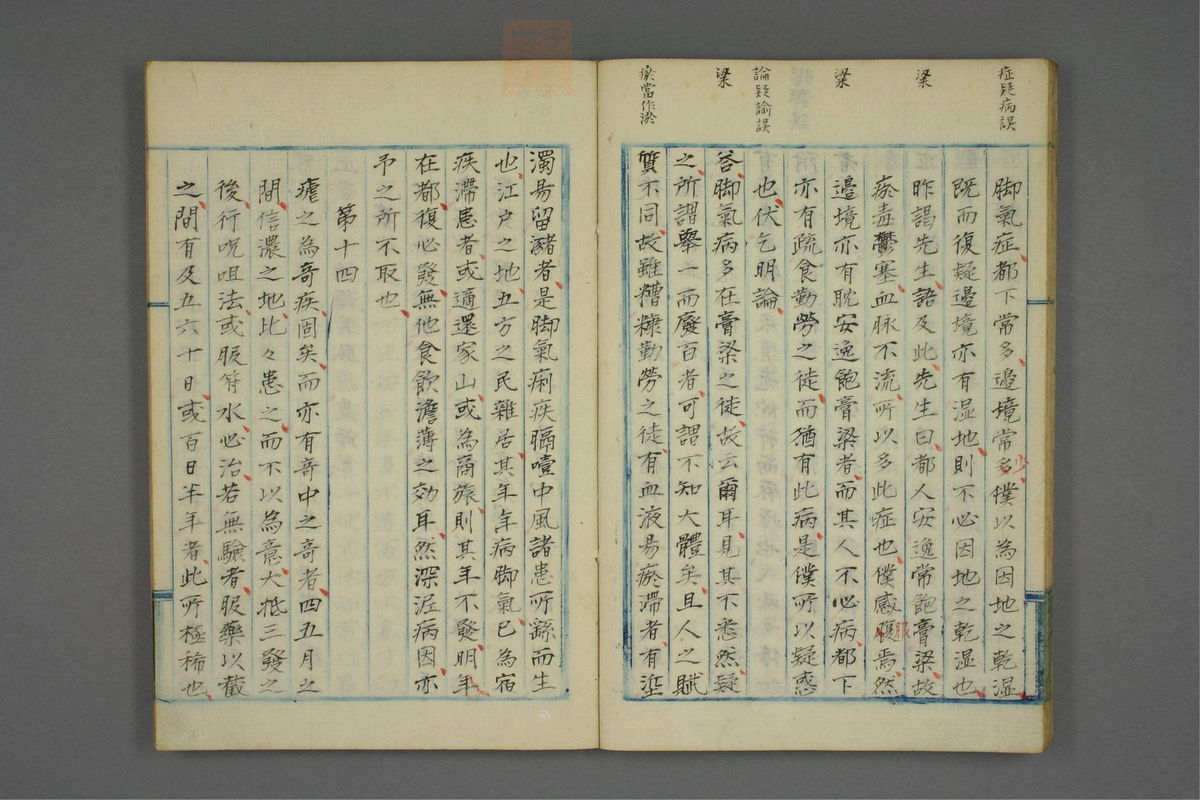 症疑病誤
粱
粱
論疑諭誤
粱
瘀當作淤
脚氣症都下常多邊境常多少僕以為因地之乾濕
既而復疑邊境亦有湿地則不必因地之乾湿也
昨謁先生語及此先生曰都人安逸常飽膏梁故
瘀毒鬱塞血脉不流所以多此症也僕感腹服焉然
邊境亦有耽安逸飽膏梁者而其人不必病都下
亦有疏食勤勞之徒而猶有此病是僕所以疑惑
有也伏乞明論
答脚氣病多在膏梁之徒故云爾耳見其不悉然疑
之所謂擧一而廢百者可謂不知大體矣且人之賦
質不同故雖糟糠勤勞之徒有血液易瘀滞者有
濁易留瀦者是脚氣痢疾膈噎中風諸患所繇而生
也江戸之地五方之民雜居其年年病脚氣已為宿
疾滞患者或適還家山或為商旅則其年不發明年
在都復必發無他食飲澹薄之効耳然深泥病因亦
予之所不取也
第十四
瘧之為奇疾固矣而亦有奇中之奇者四五月之
間信濃之地比々患之而不以為意大抵三發之
後行呪咀法或服符水必治若無驗者服藥以截
之間有及五六十日或百日半年者此所極稀也